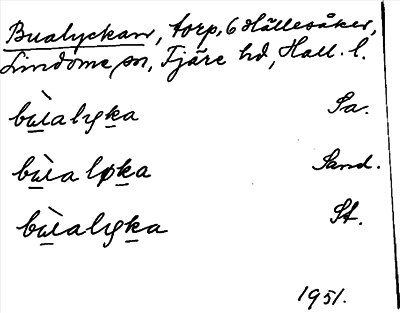 Bualyckan, torp, 6 Hällesåker,
Lindome sn, Fjäre hd, Hall. l.
bu̲ìalyk̲a Sa.
bu̲ìaløk̲a Sand.
bu̲ìalyk̲a St.
1951.